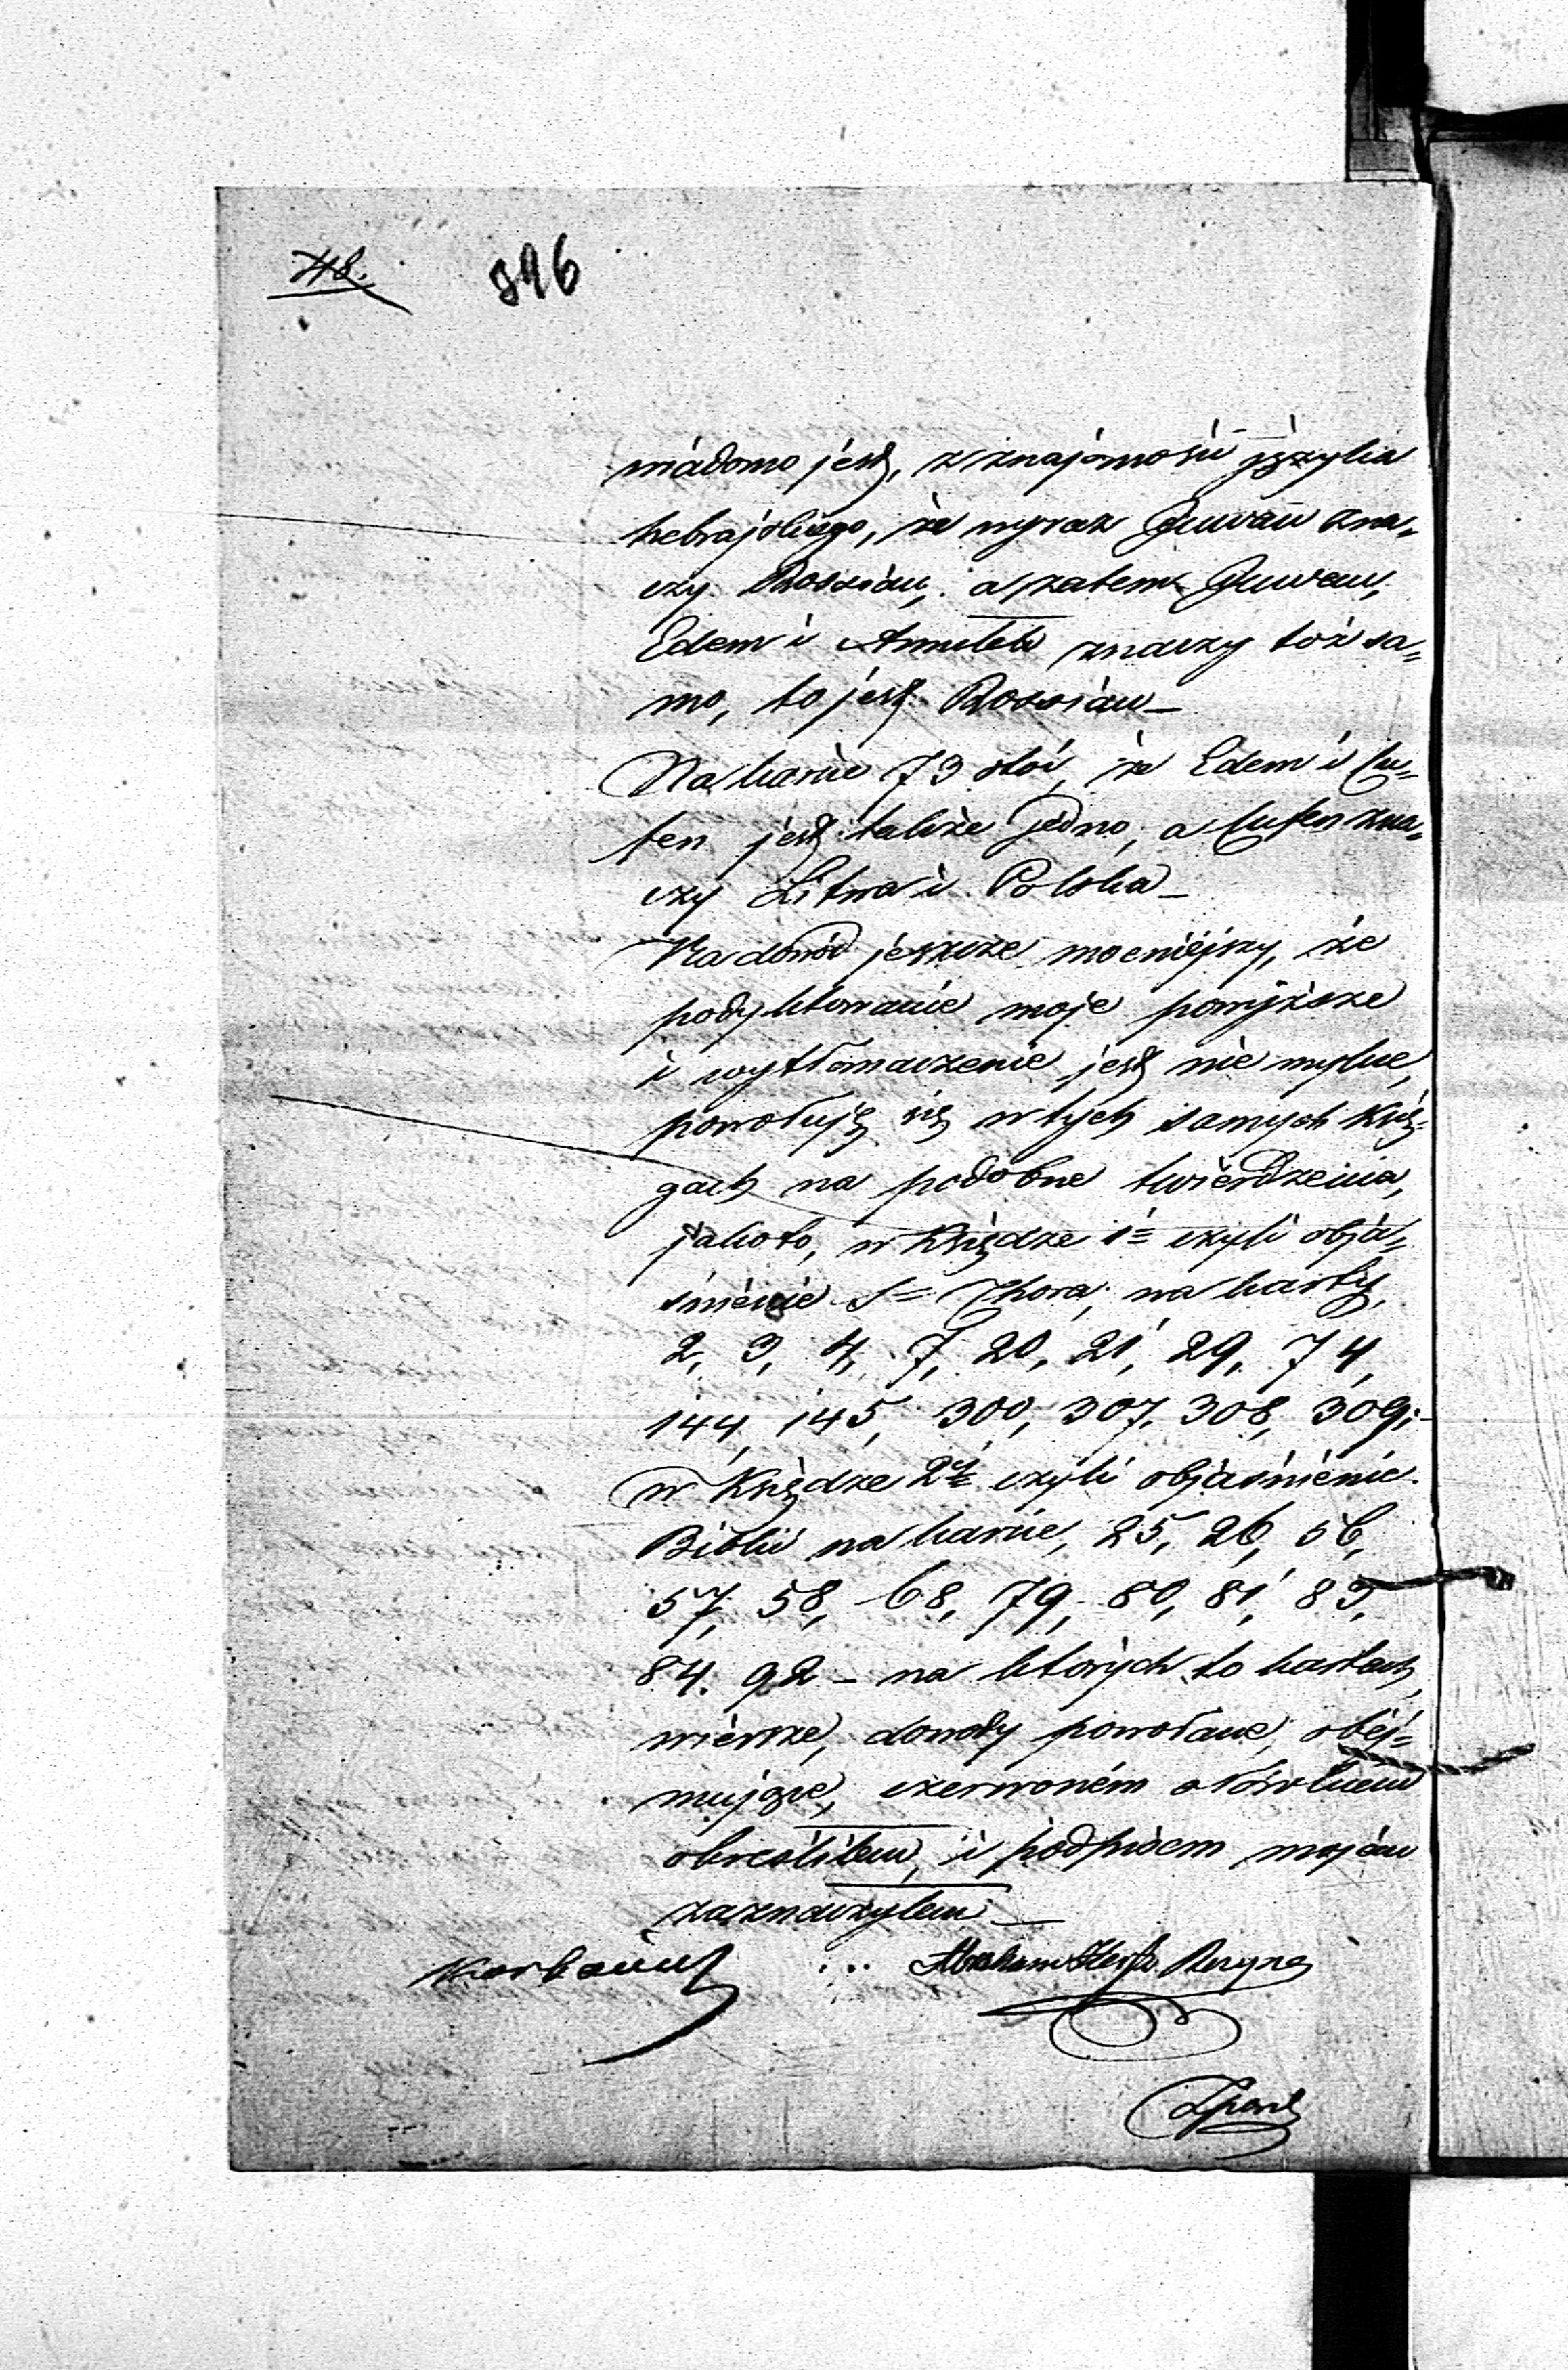 48. 896
wiadomo jest, z znajomości języka
hebrajskiego, że wyraz Juwan zna„
czy Rossian, a zatem Juwan,
Edem i Amulek znaczy toż sa„
mo, to jest Rossian –
Na karcie 73 stoi, że Edem i Cu„
ten jest także jedno, a Cuten zna„
czy Litwa i Polska –
Na dowód jeszcze mocniejszy, że
podyktowanie moje powyższe
i wytłomaczenie jest nie mylne,
powołuję się w tych samych Księ„
gach na podobne twierdzenia,
jakoto, w Księdze 1= czyli objá„
śnienie S= Thora, na karty,
2, 3, 4, 7, 20, 21, 29, 74,
144, 145, 300, 307, 308, 309;–
w Księdze 2éj czyli objaśnienie
Biblii na karcie, 25, 26, 56,
57, 58, 68, 79, 80, 81, 83,
84. 92 – na których to kartach,
wiersze, dowody powołane, obéj„
mujące, czerwoném ołówkiem
obreślilem, i podpisem mojém
zaznaczylem –
Abraham Herszk